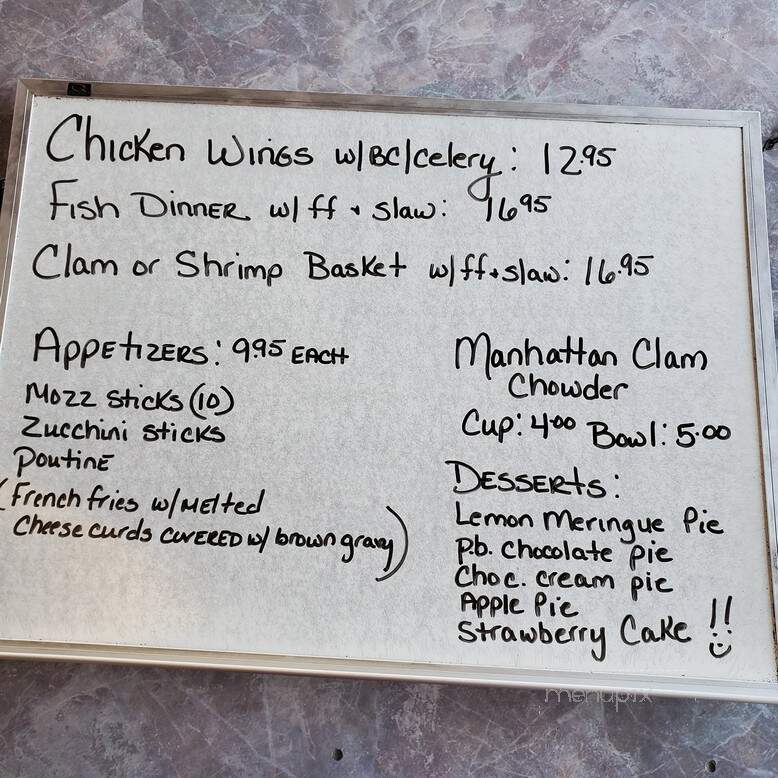 Chicken Wings w/BC/celery: 12.95
Fish Dinner w/ ff + slaw: 16.95
Clam or Shrimp Basket w/ff+slaw: 16.95
Appetizers: 9.95 each
Mozz sticks (10)
Zucchini sticks
Poutine
(French fries w/melted
Cheese curds covered w/ brown gravy)
Manhattan Clam
Chowder
Cup: 4.00 Bowl: 5.00
Desserts:
Lemon Meringue Pie
P.b. Chocolate pie
Choc. cream pie
Apple Pie
Strawberry Cake !!
menupix